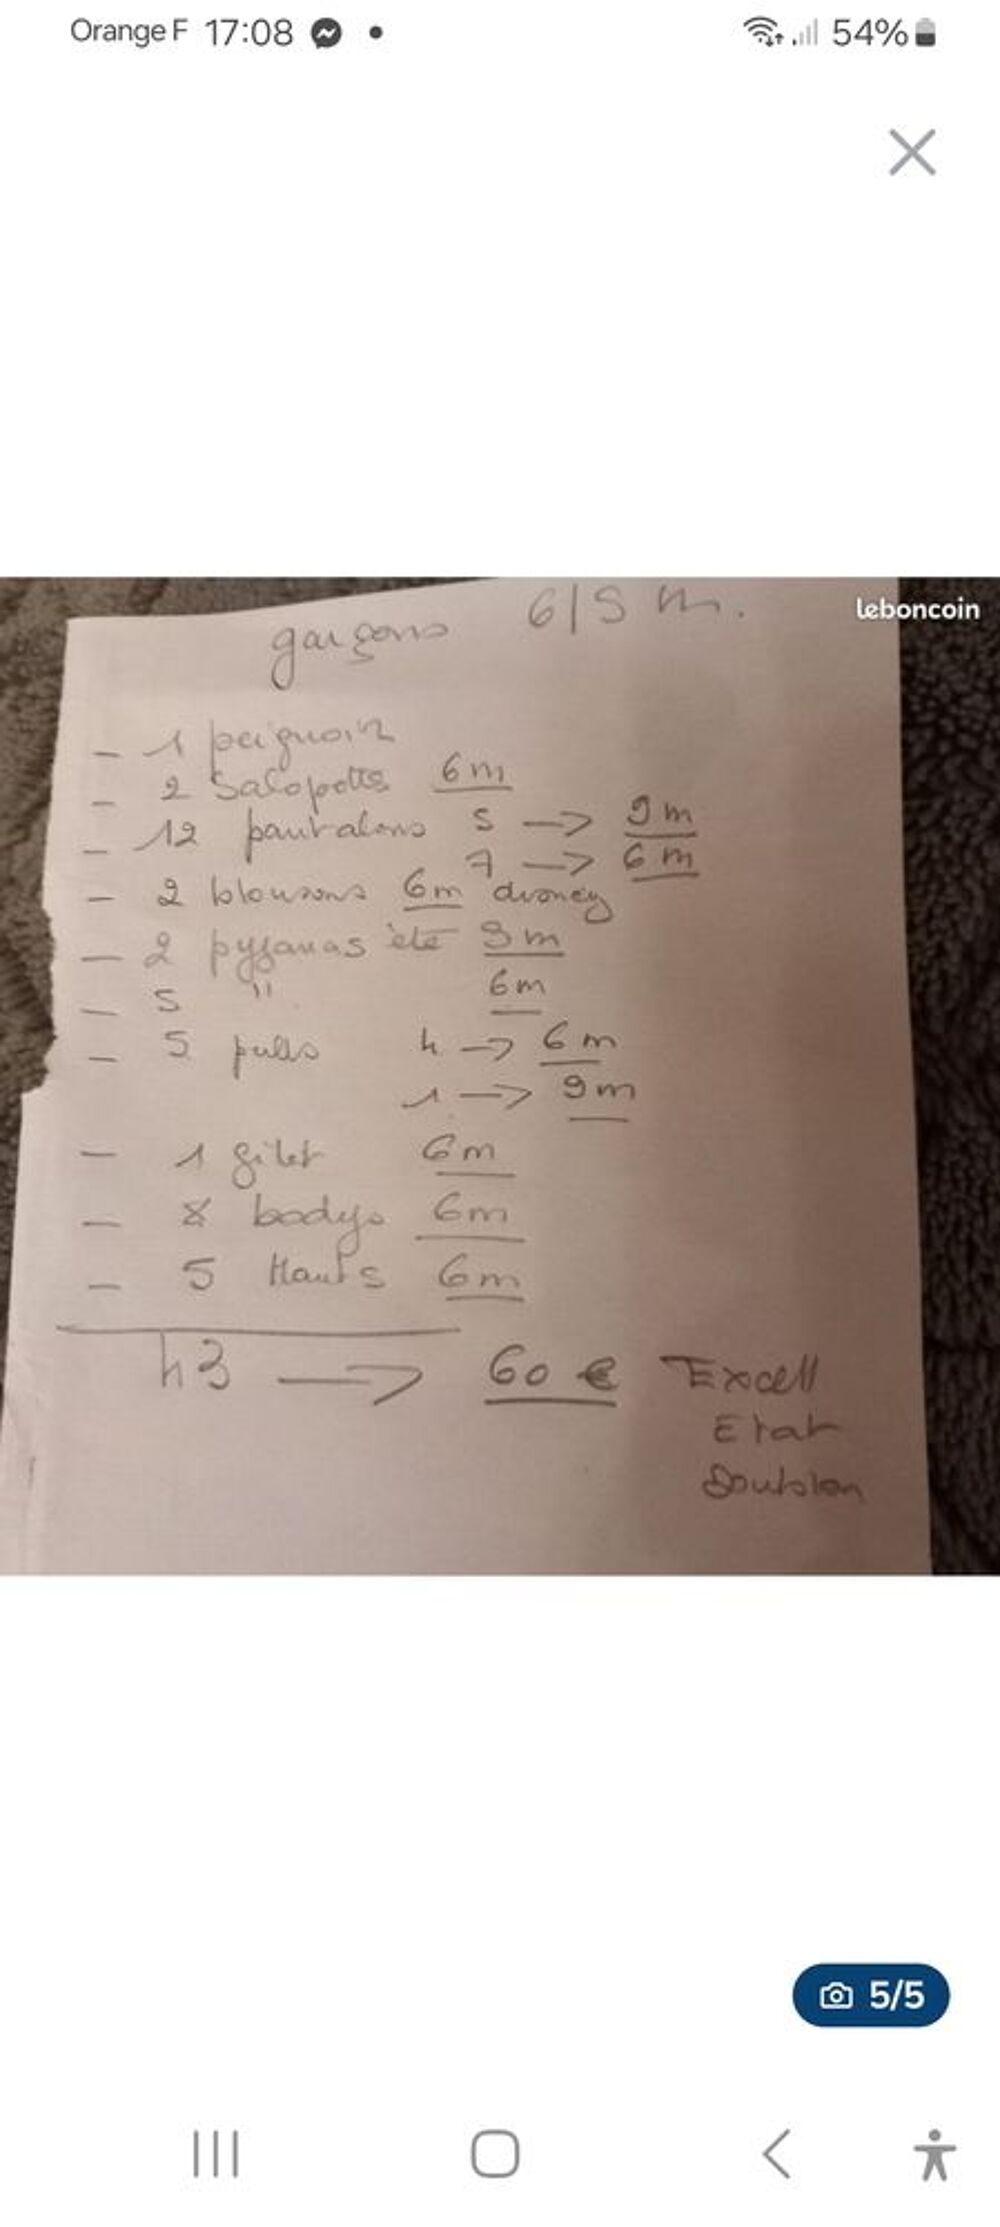 Orange F 17:08 54%
leboncoin
garçons 6/9 m.
- 1 peignoir
- 2 Salopetts 6m
- 12 pantalons 5 -> 9m
7 -> 6m
- 2 blousons 6m disney
- 2 pyjamas été 9m
- 5 " 6m
- 5 pulls 4 -> 6m
1 -> 9m
- 1 gilet 6m
- 8 bodys 6m
- 5 Hauts 6m
43 -> 60 € Excell
Etat
5/5